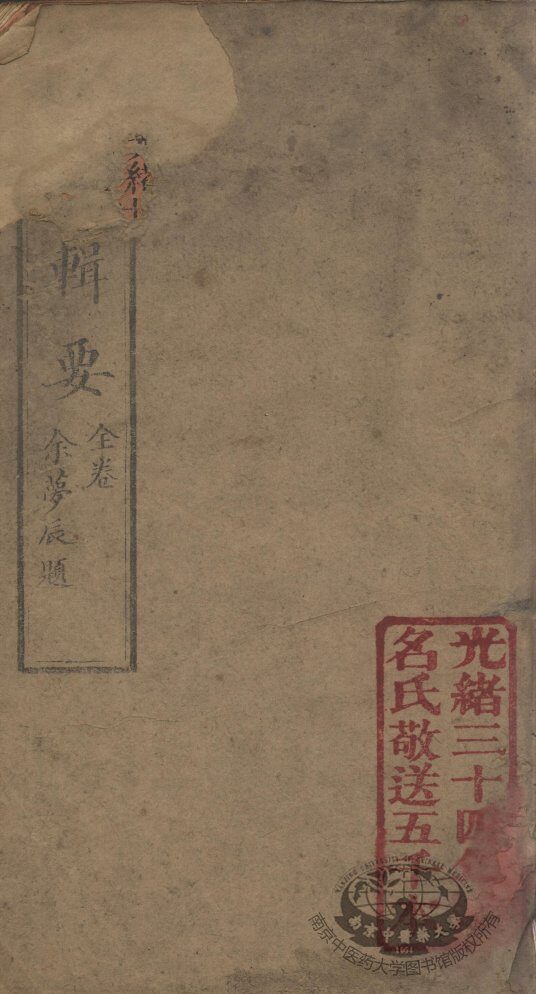 輯要
全卷
余夢辰題
光緒三十四
名氏敬送五千本
南京中醫藥大學
NANJING UNIVERSITY OF CHINESE MEDICINE
1954
南京中医药大学图书馆版权所有